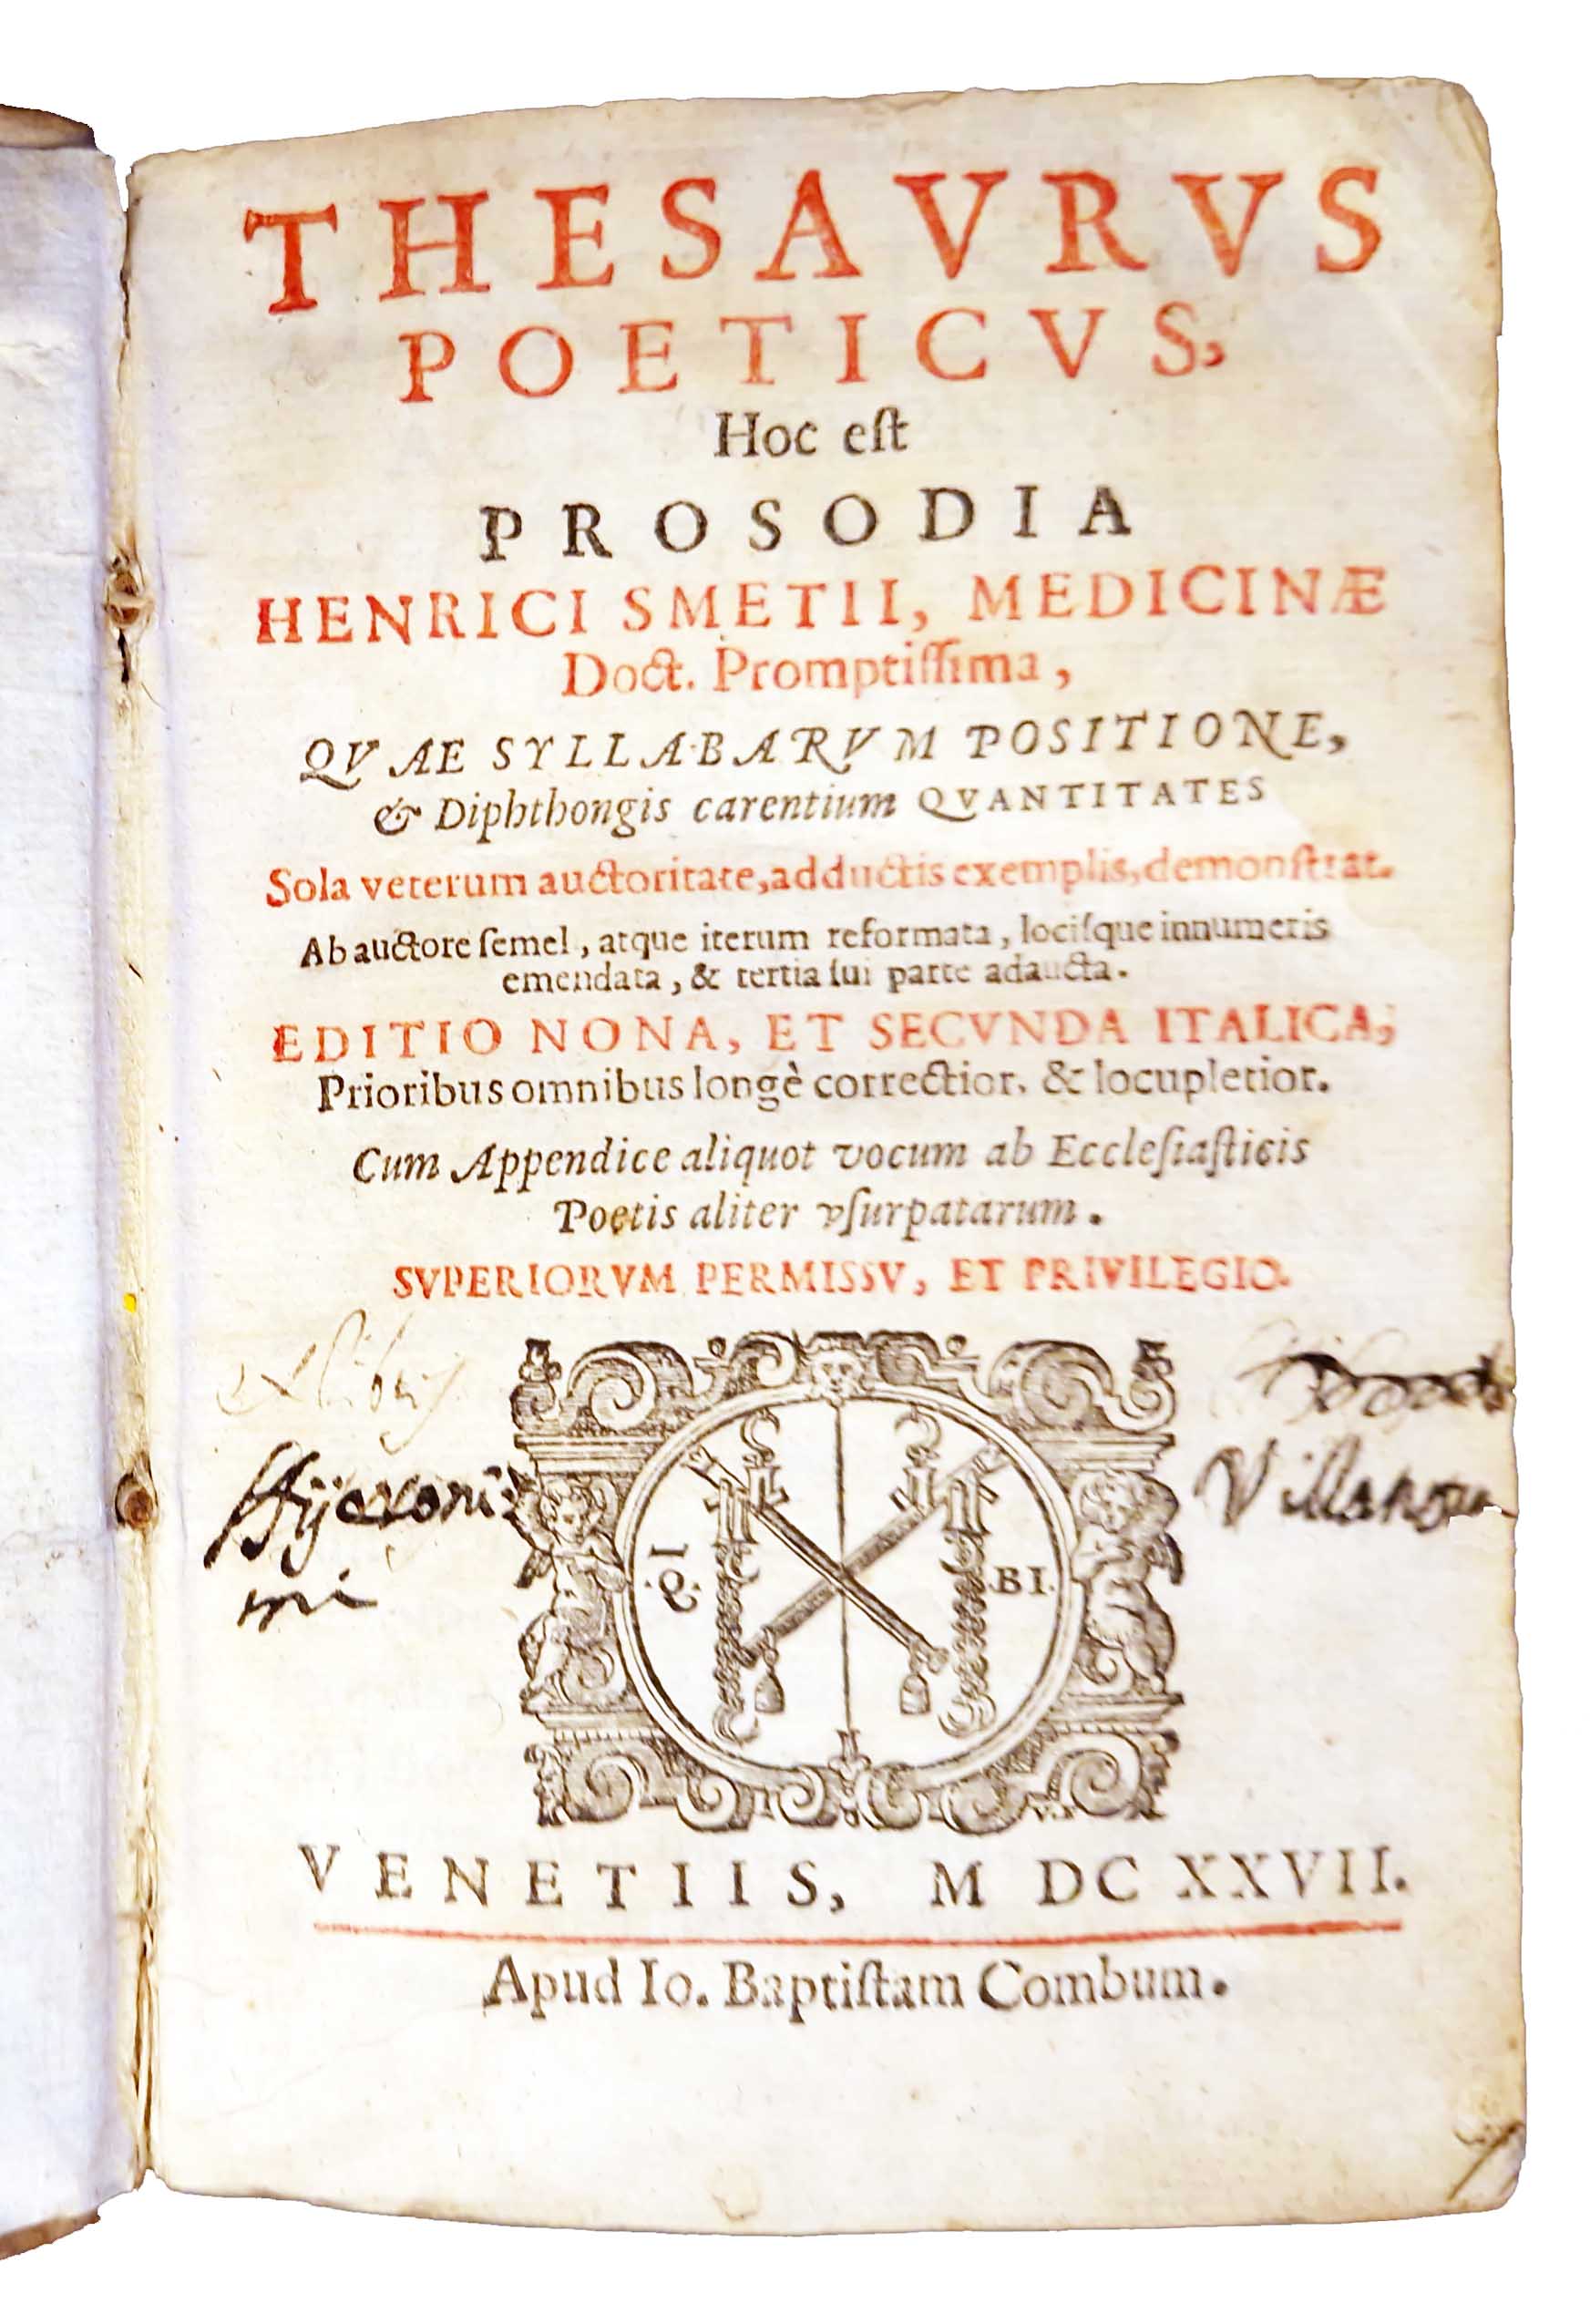 THESAVRVS
POETICVS,
Hoc eſt
PROSODIA
HENRICI SMETII, MEDICINÆ
Doct. Promptiſſima,
QVAE SYLLABARVM POSITIONE,
& Diphthongis carentium QVANTITATES
Sola veterum auctoritate, adductis exemplis, demonſtrat.
Ab auctore ſemel, atque iterum reformata, lociſque innumeris
emendata, & tertia ſui parte adaucta.
EDITIO NONA, ET SECVNDA ITALICA,
Prioribus omnibus longè correctior, & locupletior.
Cum Appendice aliquot vocum ab Eccleſiaſticis
Poetis aliter vſurpatarum.
SVPERIORVM PERMISSV, ET PRIVILEGIO.
ex libris
Hyeroni
mi
BI.
VENETIIS, M DC XXVII.
Apud Io. Baptiſtam Combum.